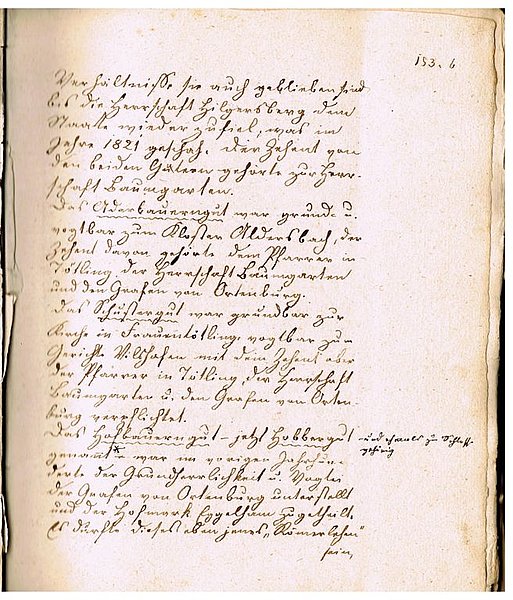 153. 6
Verhältnisse sie auch geblieben sind
bis die Herrschaft Hilgersberg dem
Staate wieder zufiel, was im
Jahre 1821 geschah. Der Zehent von
den beiden Gütern gehörte zur Herr-
schaft Baumgarten.
Das Aderbauerngut war grund- u.
vogtbar zum Kloster Aldersbach, der
Zehent davon gehörte dem Pfarrer in
Tötling, der Herrschaft Baumgarten
und den Grafen von Ortenburg.
Das Schustergut war grundbar zur
Kirche in Frauentötling, vogtbar zum
Gerichte Vilshofen mit dem Zehent aber
der Pfarrer in Tötling, der Herrschaft
Baumgarten u. den Grafen von Orten-
burg verpflichtet.
Das Hofbauerngut - jetzt Hobbergut
genannt war im vorigen Jahrhun-
derte der Grundherrlichkeit u. Vogtei
der Grafen von Ortenburg unterstellt
und der Hofmark Egglham zugetheilt.
Es dürfte dieses eben jenes „Römerlehen“
sein,
- und ehemals zu
gehörig